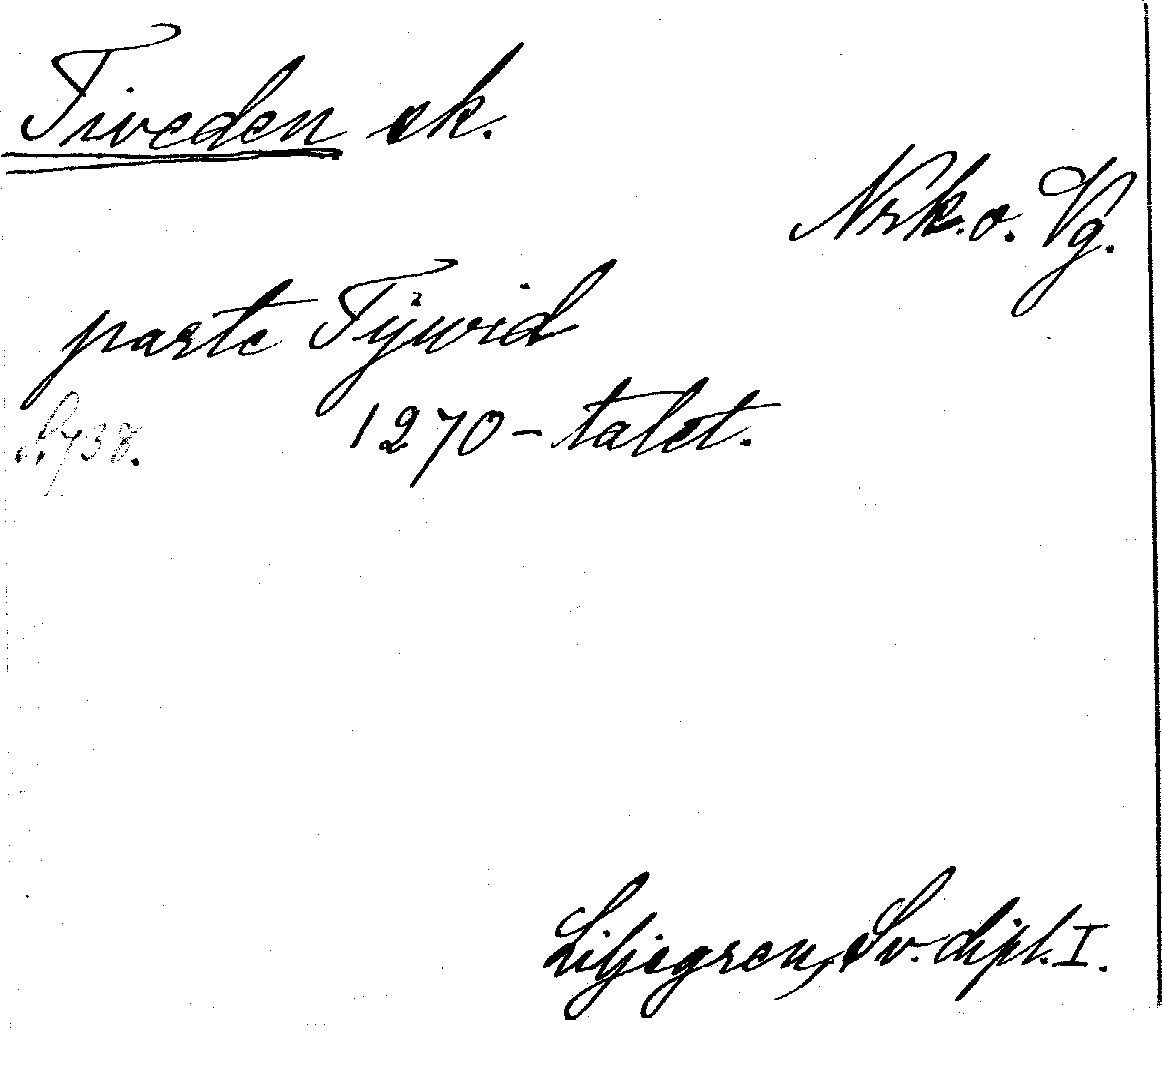 Tiveden sk.
Nrk. o. Vg.
parte Tÿwid
S. 738. 1270-talet.
Liljegren, Sv. dipl. I.